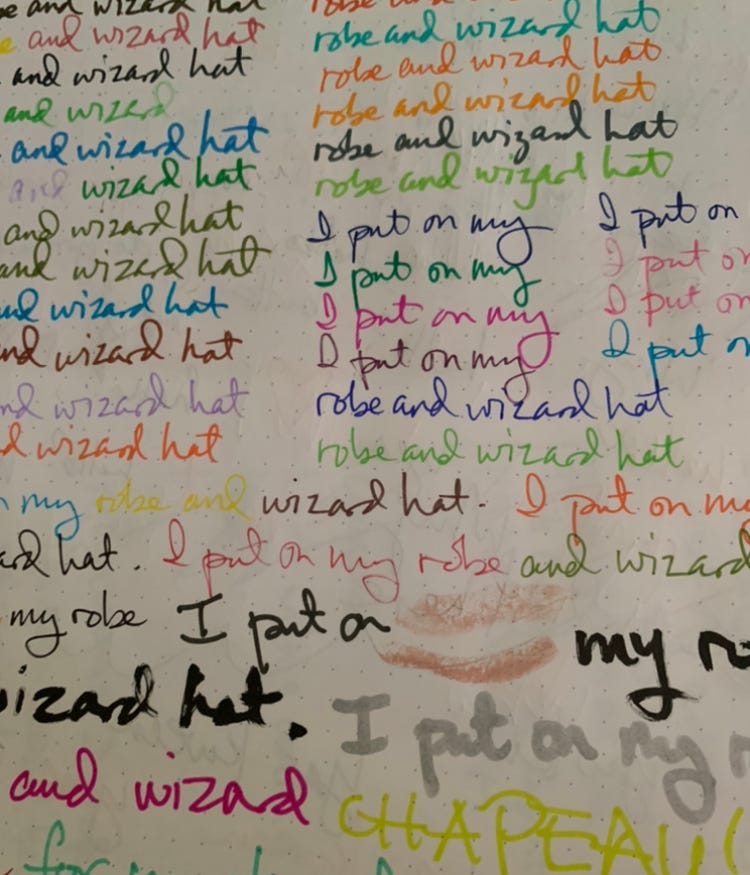 and wizard hat
and wizard hat robe and wizard hat
and wizard hat robe and wizard hat
and wizard robe and wizard hat
and wizard hat robe and wizard hat
and wizard hat robe and wizard hat
and wizard hat I put on my I put on
and wizard hat I put on my I put on
wizard hat I put on my I put on
wizard hat I put on my I put on
wizard hat robe and wizard hat
wizard hat robe and wizard hat
my robe and wizard hat. I put on
hat. I put on my robe and wizard
my robe I put on my
wizard hat. I put on my
and wizard CHAPEAU